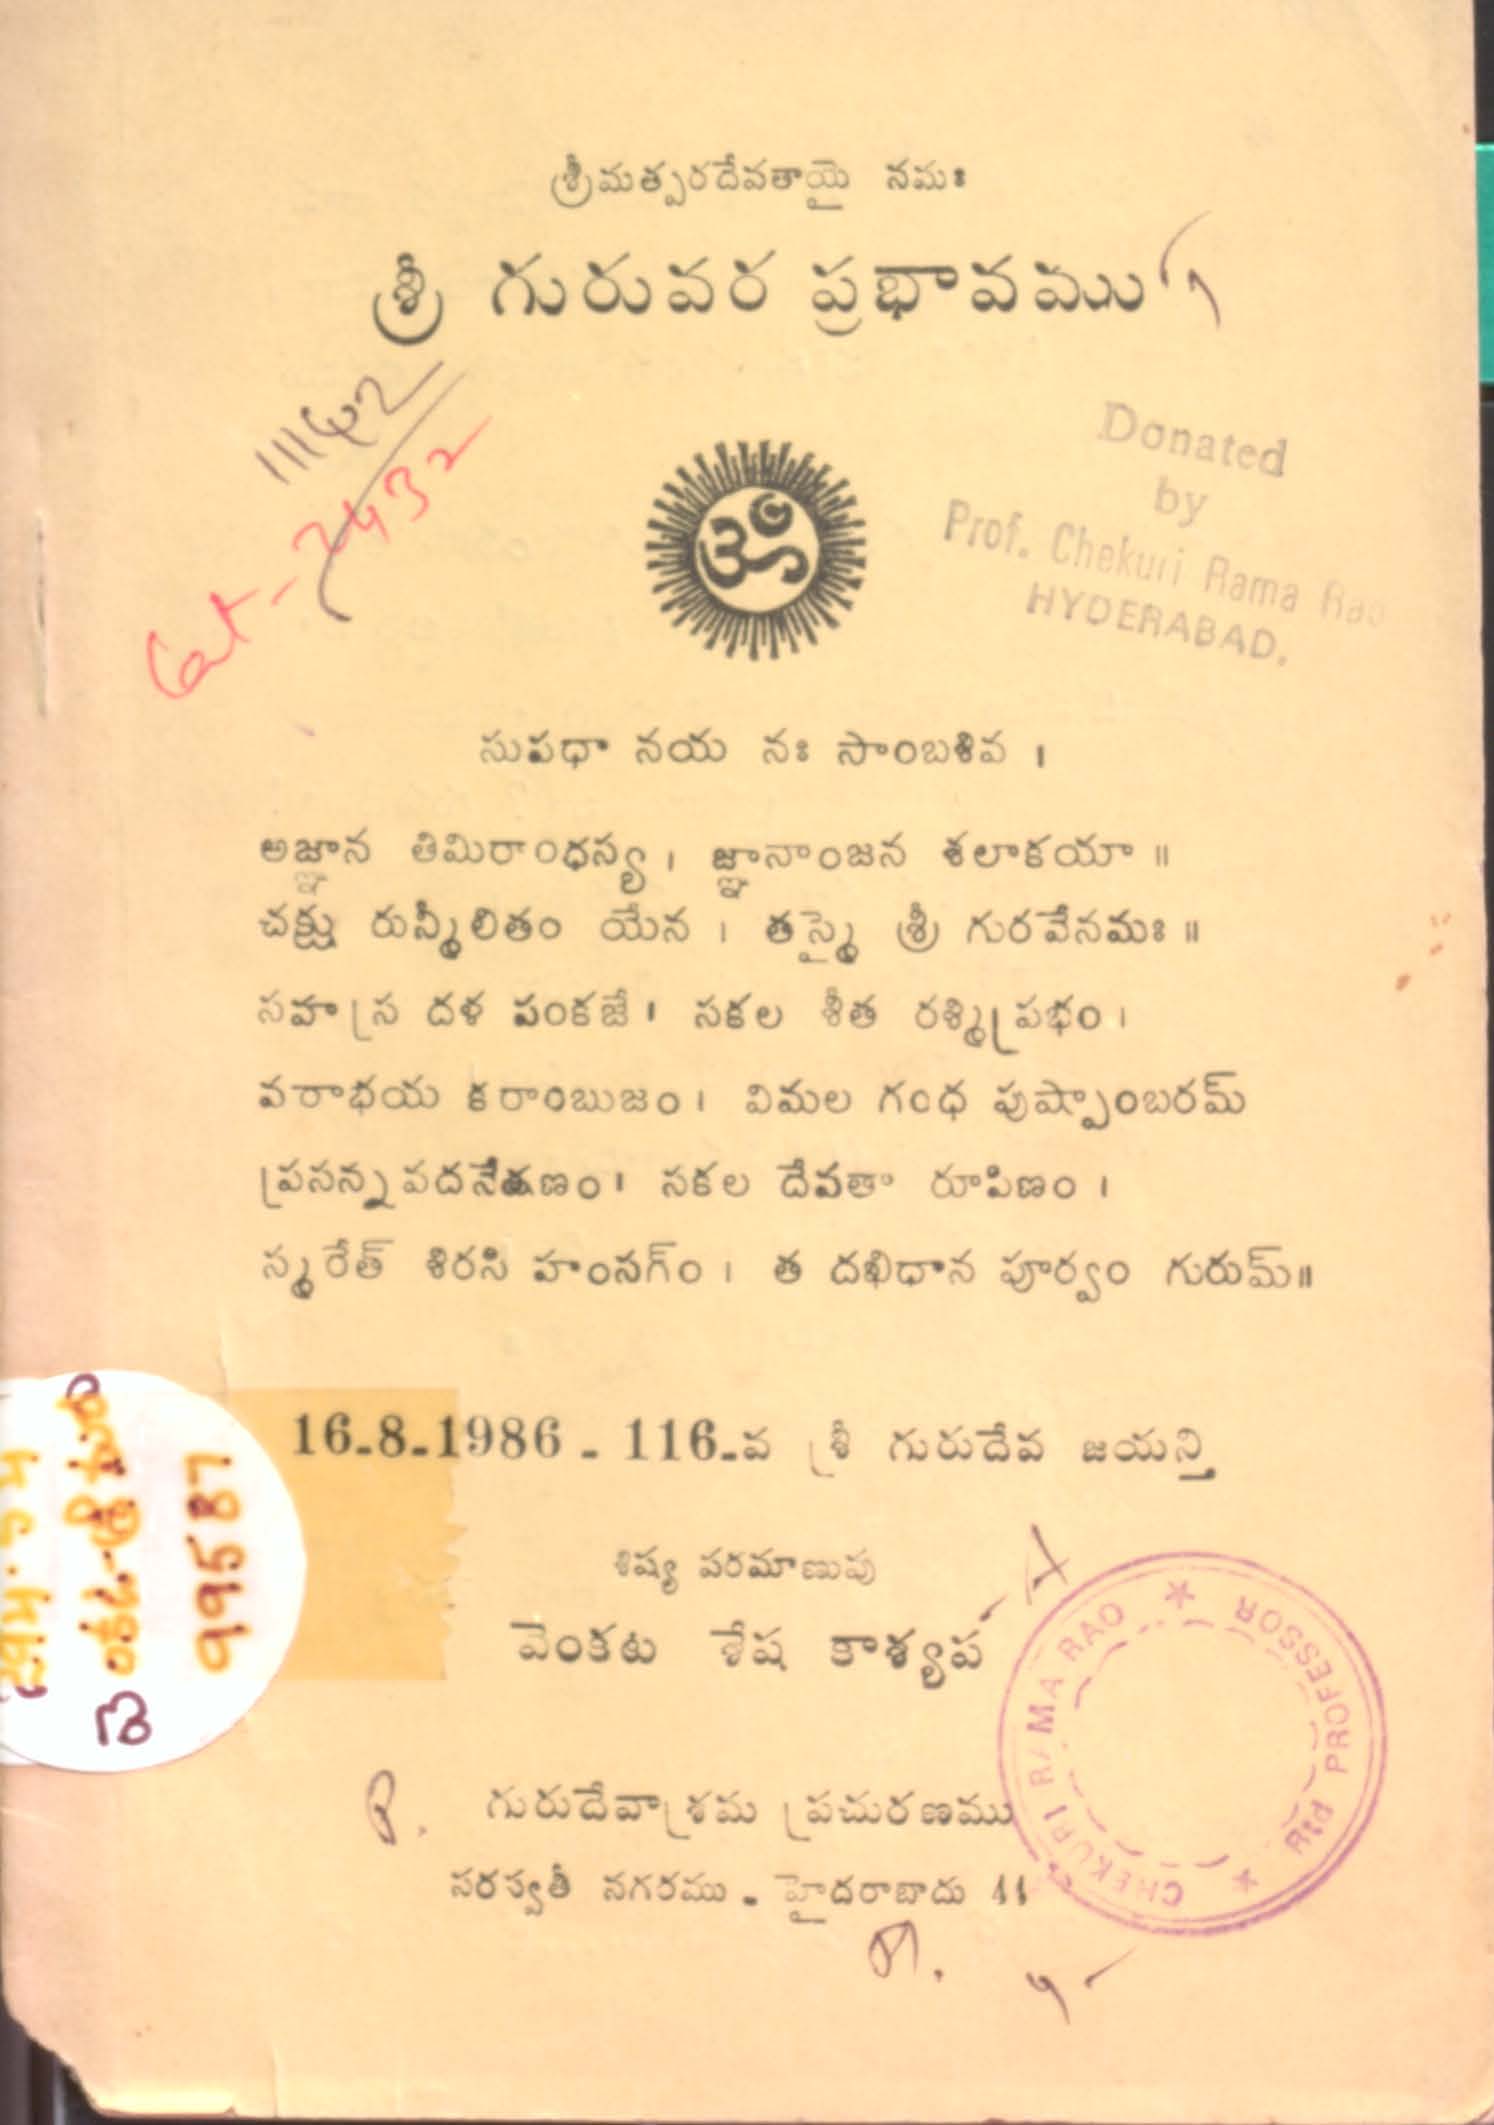 శ్రీమత్పరదేవతాయై నమః
శ్రీ గురువర ప్రభావము
11142
Cat-2432
Donated
by
Prof. Chekuri Rama Rao
HYDERABAD.
ॐ
సుపధా నయ నః సాంబశివ ।
అజ్ఞాన తిమిరాంధస్య । జ్ఞానాంజన శలాకయా ॥
చక్షు రున్మీలితం యేన । తస్మై శ్రీ గురవేనమః ॥
సహస్ర దళ పంకజే । సకల శీత రశ్మిప్రభం ।
వరాభయ కరాంబుజం । విమల గంధ పుష్పాంబరమ్
ప్రసన్న వదనేక్షణం । సకల దేవతా రూపిణం ।
స్మరేత్ శిరసి హంసగ్ం । త దఖిధాన పూర్వం గురుమ్॥
16-8-1986 - 116-వ శ్రీ గురుదేవ జయన్తి
99587
శిష్య పరమాణువు
వెంకట శేష కాశ్యప
గురుదేవాశ్రమ ప్రచురణము
సరస్వతీ నగరము - హైదరాబాదు 44
CHEKURI RAMA RAO * Rtd PROFESSOR *